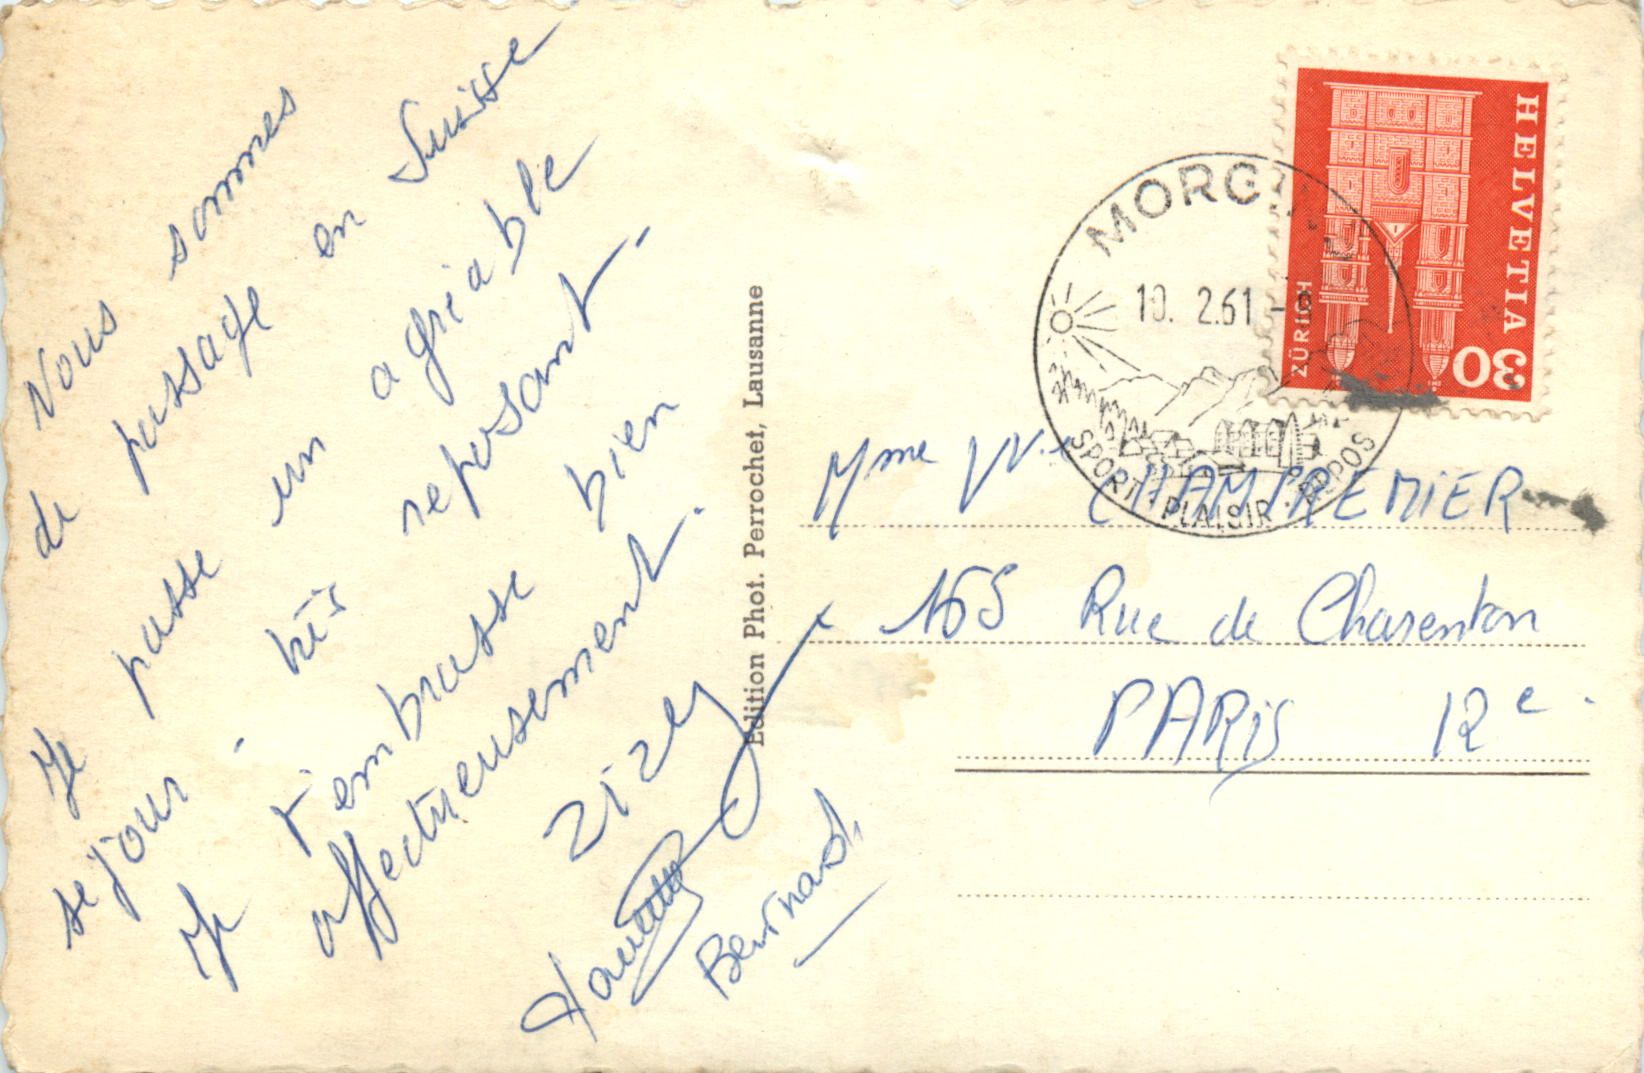 Nous sommes
de passage en Suisse
Je passe un agréable
séjour très reposant.
Je t'embrasse bien
affectueusement.
Zizey
Bernard
Edition Phot. Perrochet, Lausanne
HELVETIA
30
ZÜRICH
MORGINS
10. 2.61
SPORT · PLAISIR · REPOS
Mme Vve CHAMPREMIER
165 Rue de Charenton
PARIS 12e.